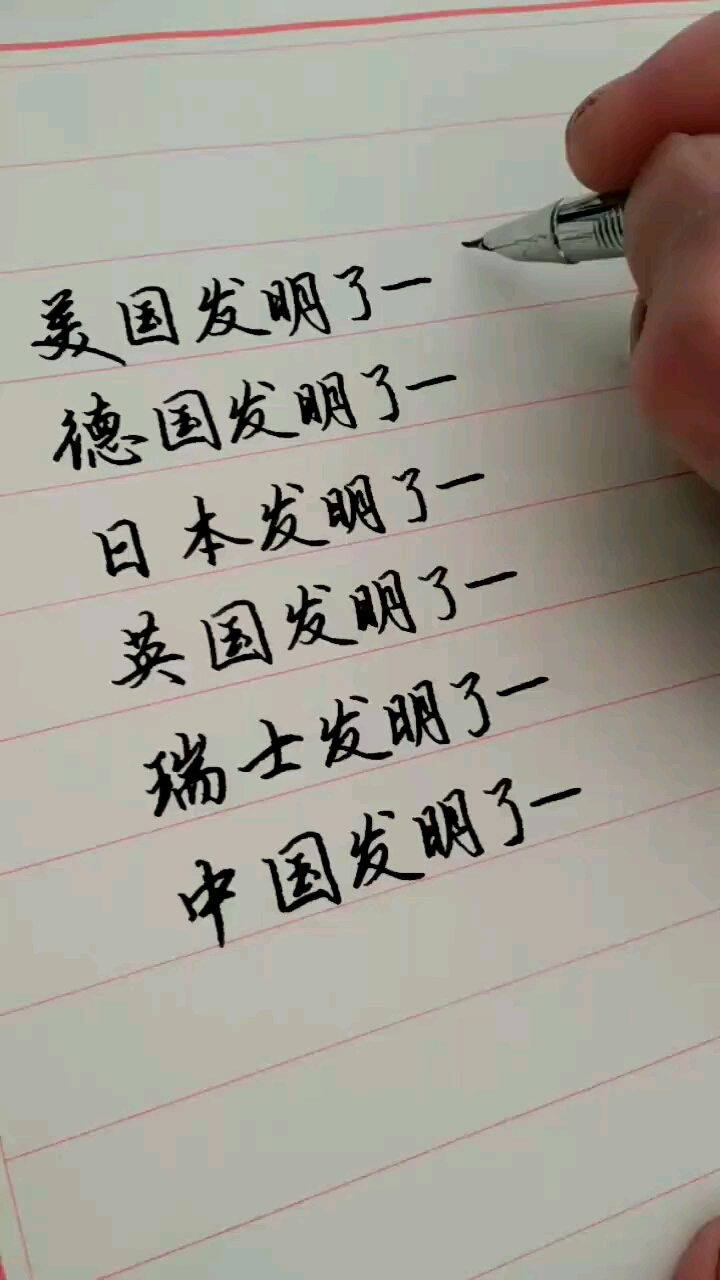 美国发明了一
德国发明了一
日本发明了一
英国发明了一
瑞士发明了一
中国发明了一